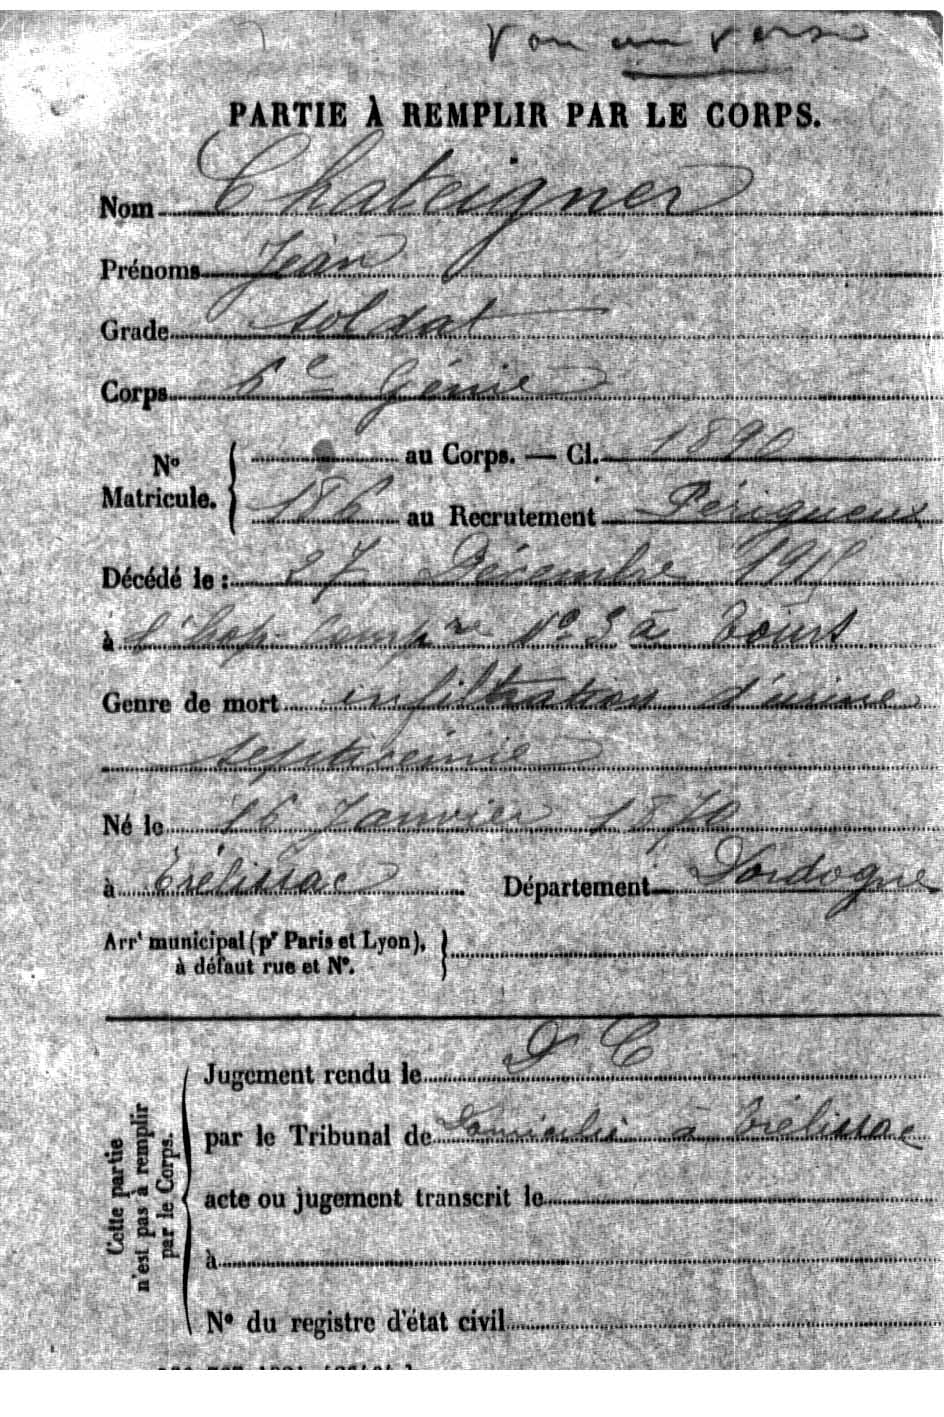 Voir au verso
PARTIE À REMPLIR PAR LE CORPS.
Nom Chateigner
Prénoms Jean
Grade soldat
Corps 6e Génie
No Matricule. au Corps. — Cl. 1890
186 au Recrutement Périgueux
Décédé le : 27 Décembre 1915
à l'hop. Compre No 3 à Tours
Genre de mort infiltration d'urine
septicémie
Né le 16 Janvier 1870
à Trélissac Département Dordogne
Arrt municipal (pr Paris et Lyon),
à défaut rue et No.
D C
Jugement rendu le
par le Tribunal de Domicilié à Trélissac
acte ou jugement transcrit le
à
No du registre d'état civil
Cette partie
n'est pas à remplir
par le Corps.